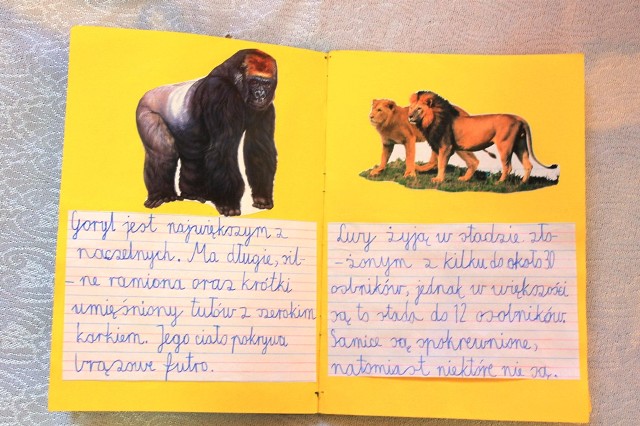 Goryl jest największym z
naczelnych. Ma długie, sil-
-ne ramiona oraz krótki
umięśniony tułów z szerokim
karkiem. Jego ciało pokrywa
brązowe futro.
Lwy żyją w stadzie zło-
-żonym z kilku do około 30
osobników, jednak w większości
są to stada do 12 osobników.
Samice są spokrewnione,
natomiast niektóre nie są.